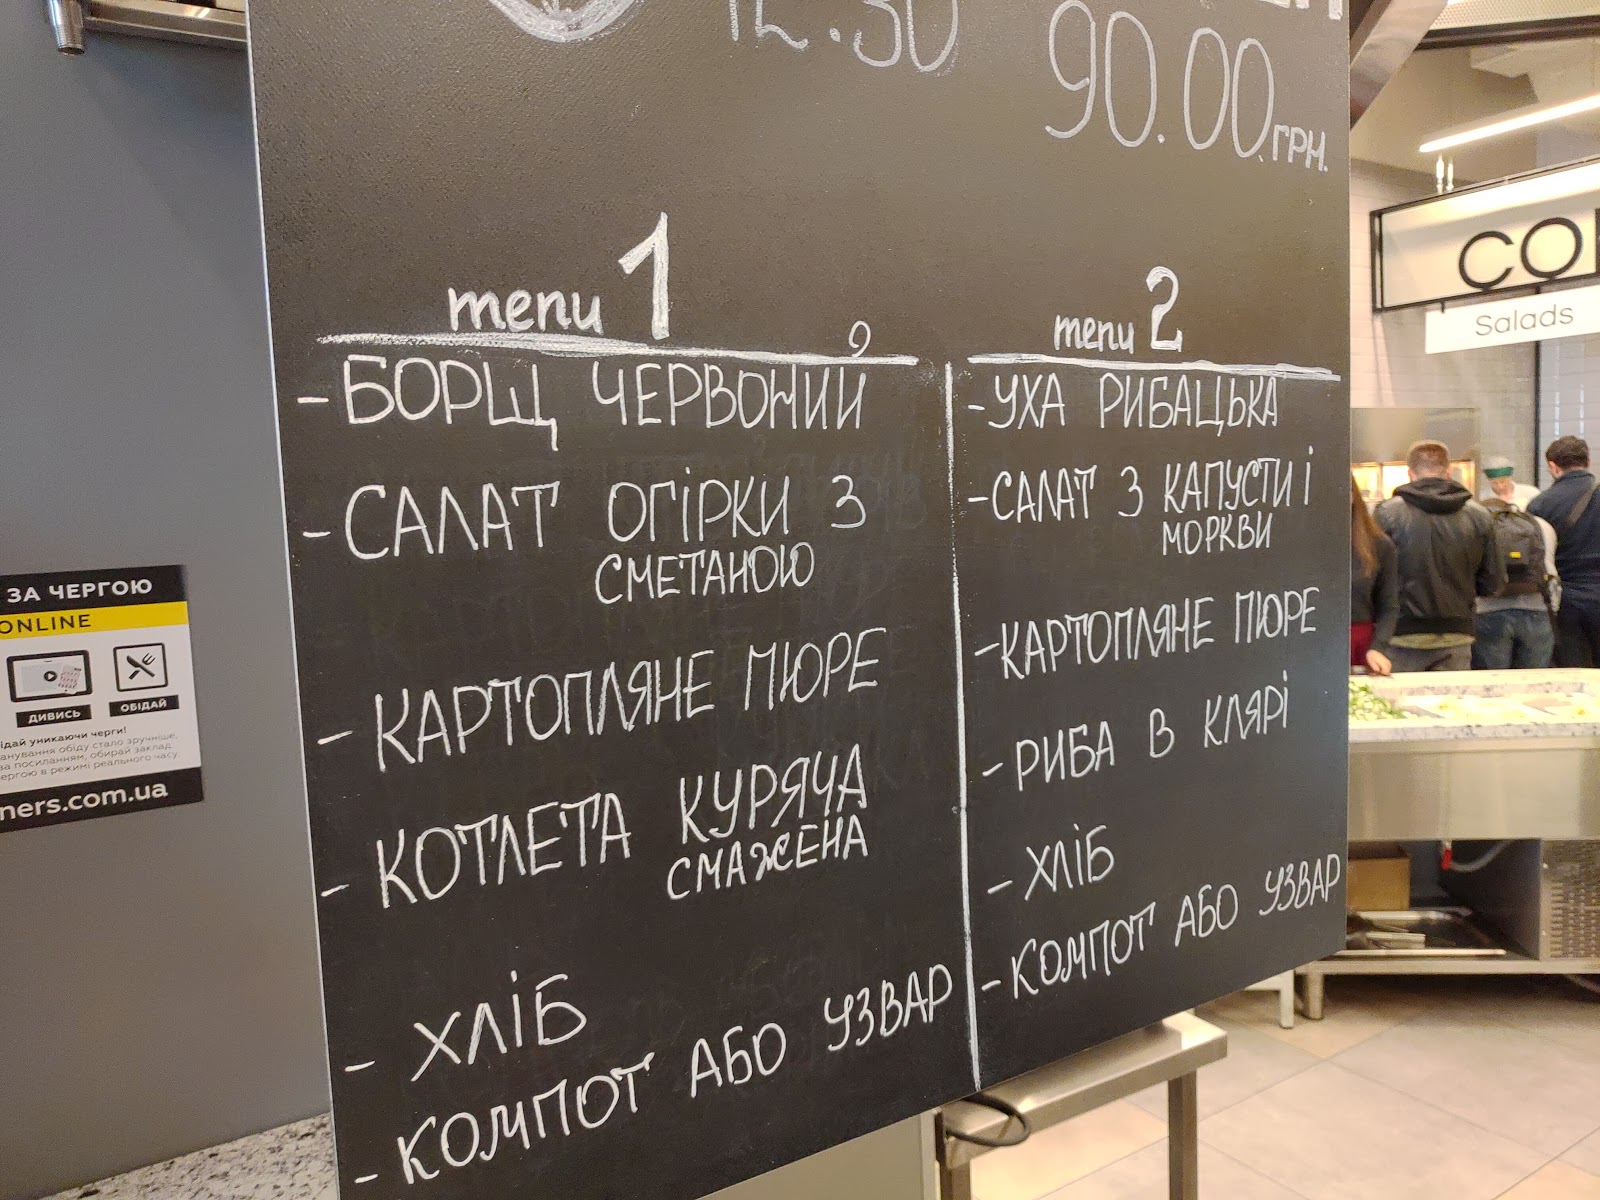 12.30
90.00 ГРН.
menu 1
- БОРЩ ЧЕРВОНИЙ
- САЛАТ ОГІРКИ З
СМЕТАНОЮ
- КАРТОПЛЯНЕ ПЮРЕ
- КОТЛЕТА КУРЯЧА
СМАЖЕНА
- ХЛІБ
- КОМПОТ АБО УЗВАР
menu 2
- УХА РИБАЦЬКА
- САЛАТ З КАПУСТИ І
МОРКВИ
- КАРТОПЛЯНЕ ПЮРЕ
- РИБА В КЛЯРІ
- ХЛІБ
- КОМПОТ АБО УЗВАР
ЗА ЧЕРГОЮ
ONLINE
ДИВИСЬ
ОБІДАЙ
ідай уникаючи черги!
анування обіду стало зручніше,
за посиланням, обирай заклад
чергою в режимі реального часу.
ners.com.ua
Salads